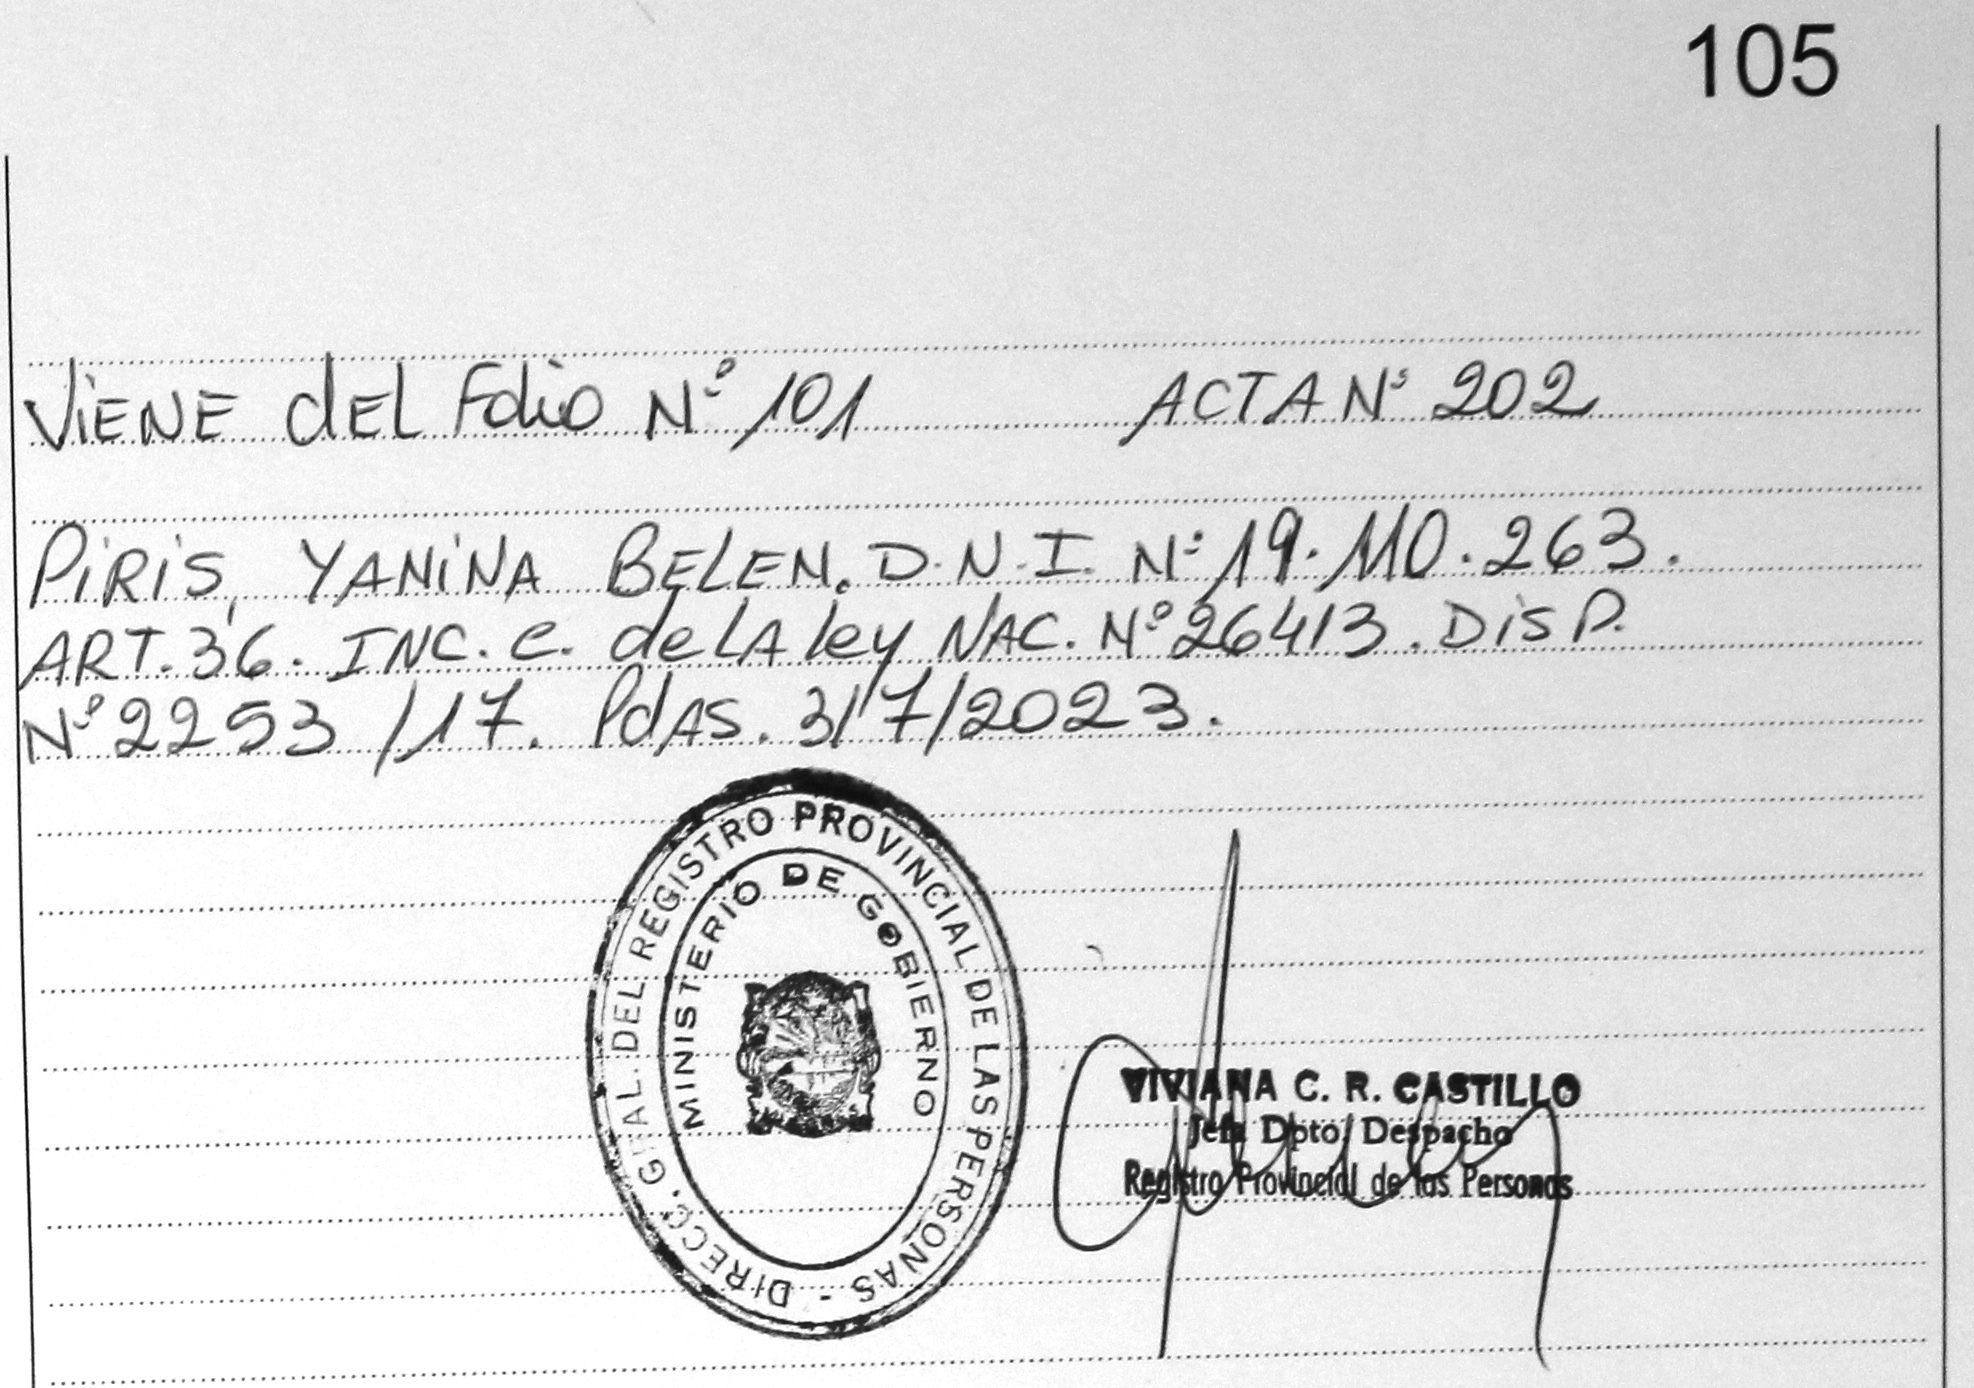 105
ViENE dEL Folio Nº 101 ACTA Nº 202
PiRiS, YANiNA BELEN. D.N.I. Nº 19.110.263.
ART. 36. INC. C. de LA ley NAC. Nº 26413. DiSP.
Nº 2253/17. PdAS. 3/7/2023.
DIRECC. GRAL. DEL REGISTRO PROVINCIAL DE LAS PERSONAS -
MINISTERIO DE GOBIERNO
VIVIANA C. R. CASTILLO
Jefa Dpto. Despacho
Registro Provincial de las Personas